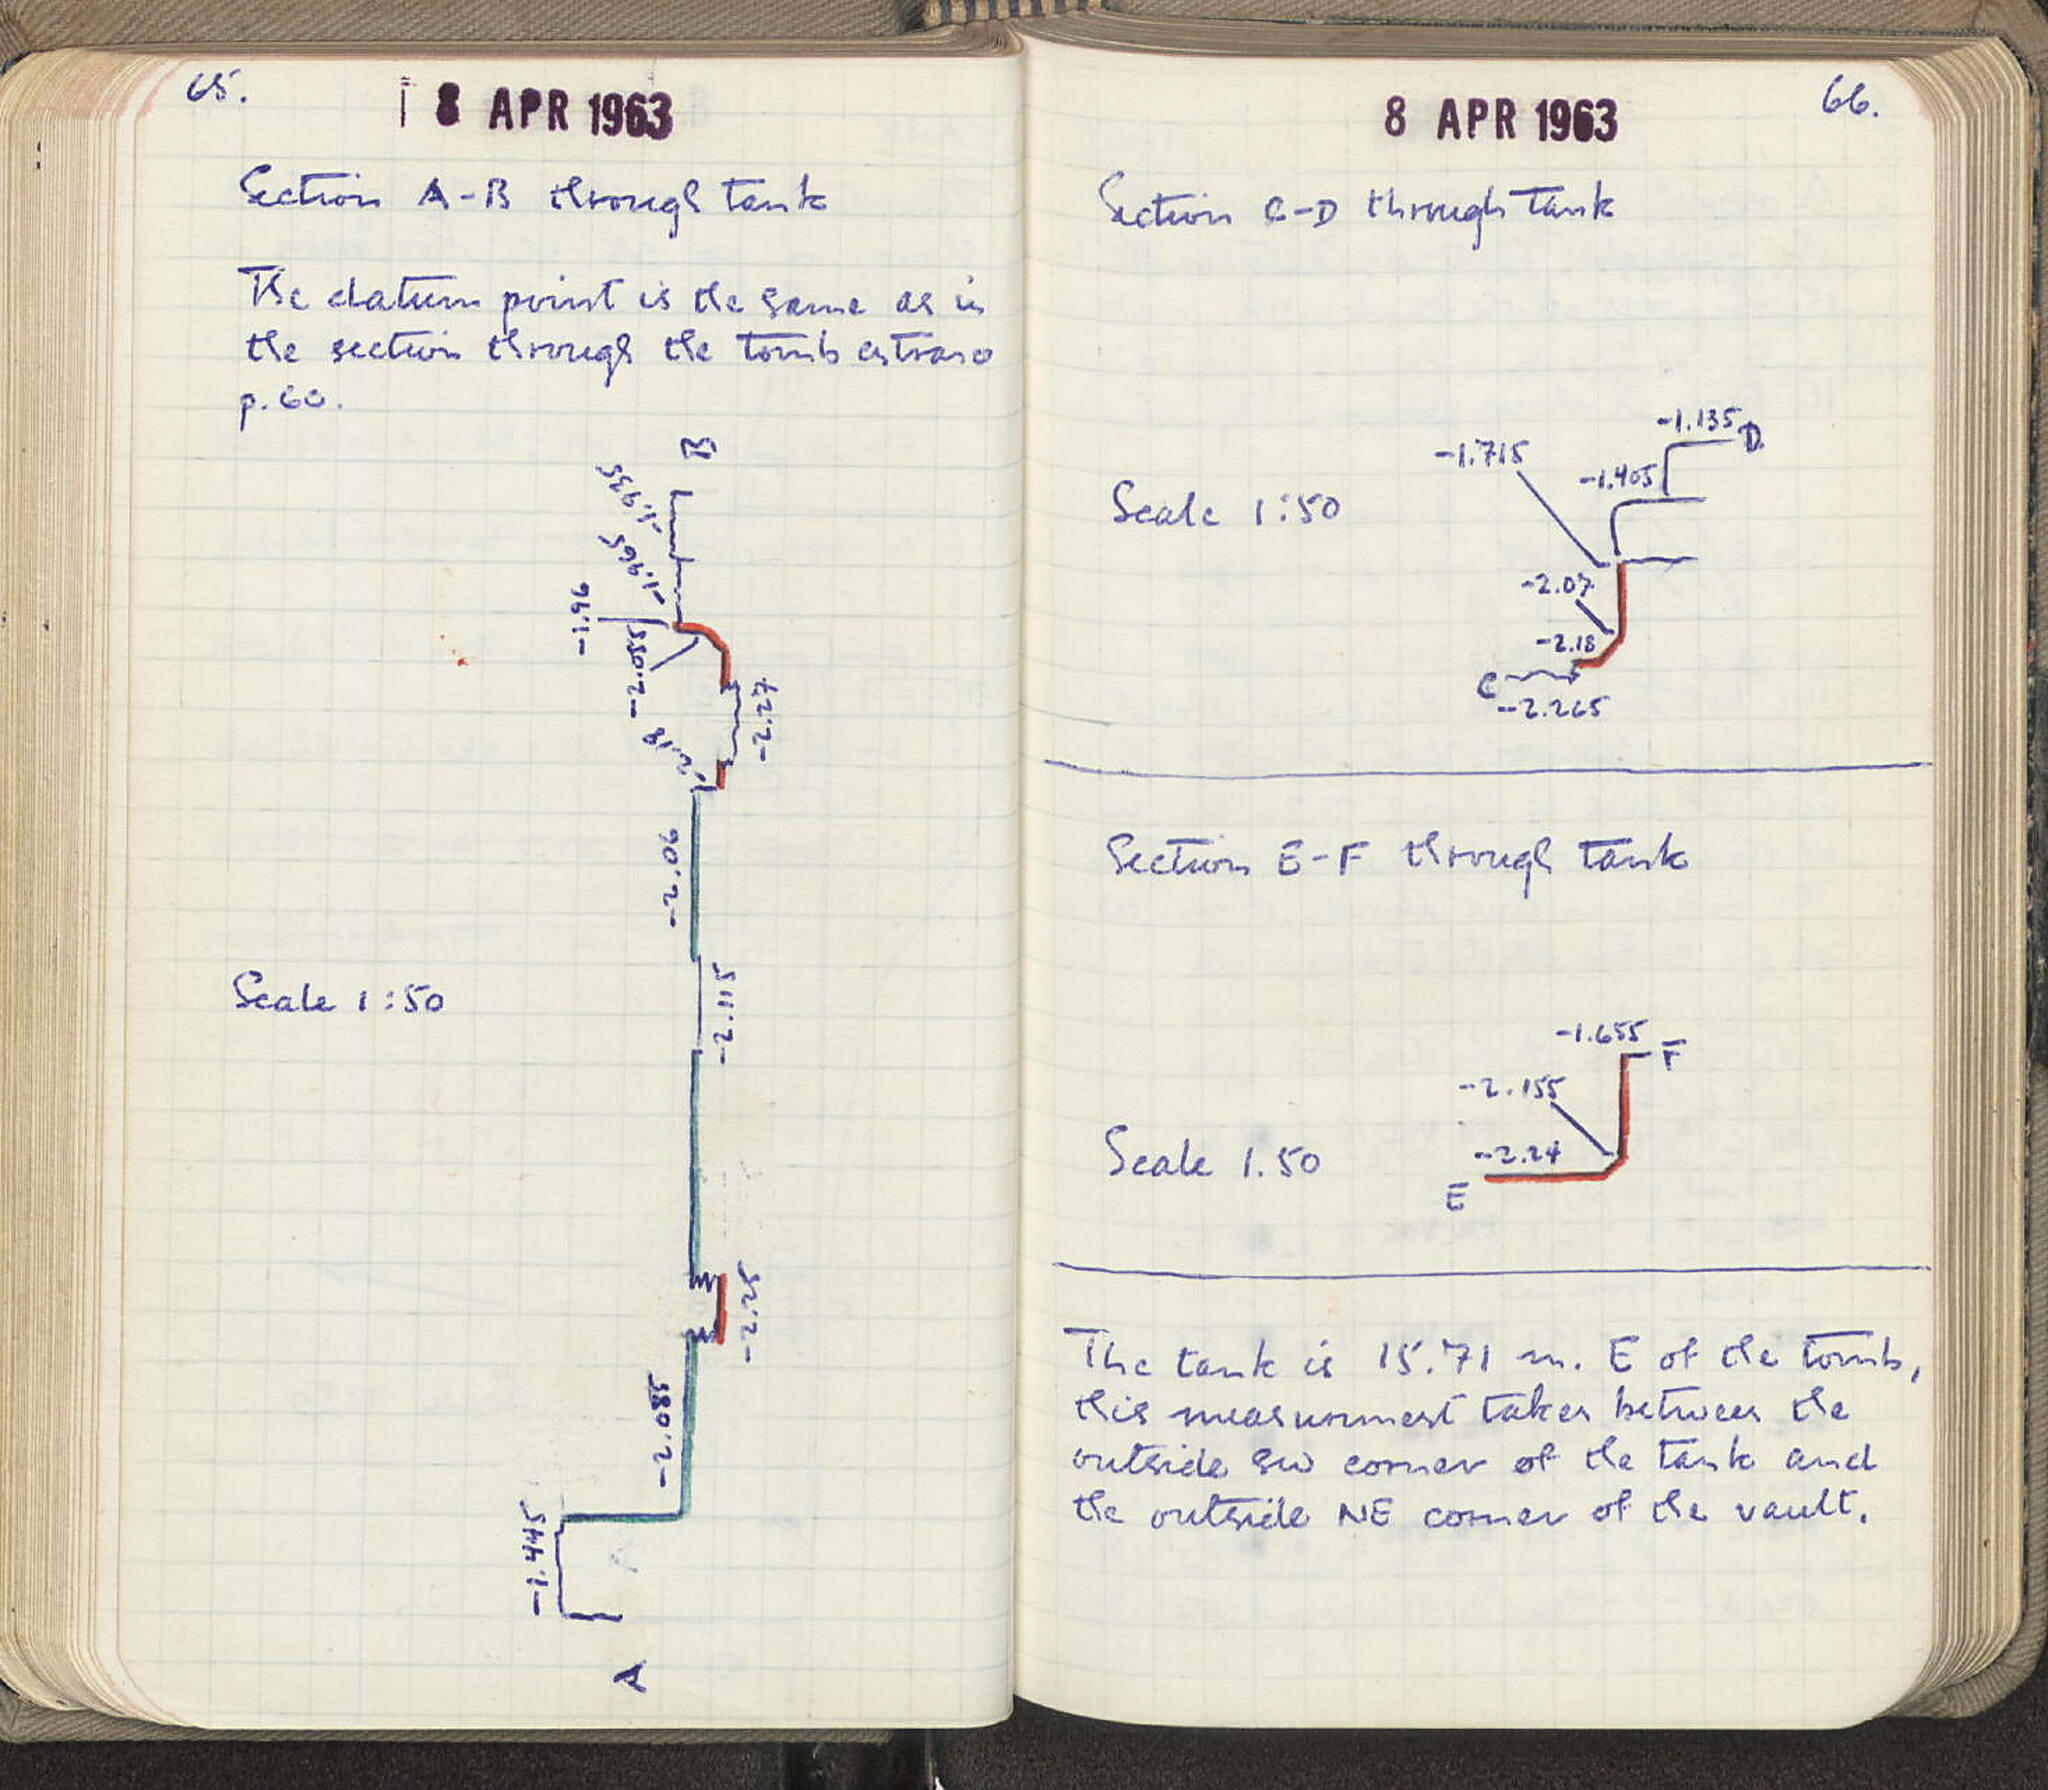 65.
8 APR 1963
Section A-B through tank
The datum point is the same as in
the section through the tomb
p. 60.
B
-1.935
-1.965
-1.96
-2.055
-2.27
-2.18
-2.06
-2.115
Scale 1:50
-2.25
-2.085
-1.445
A
66.
8 APR 1963
Section C-D through tank
-1.135
D
-1.715
-1.405
Scale 1:50
-2.07
-2.18
C
-2.265
Section E-F through tank
-1.655
F
-2.155
Scale 1.50
-2.24
E
The tank is 15.71 m. E of the tomb,
this measurment taken between the
outside SW corner of the tank and
the outside NE corner of the vault.